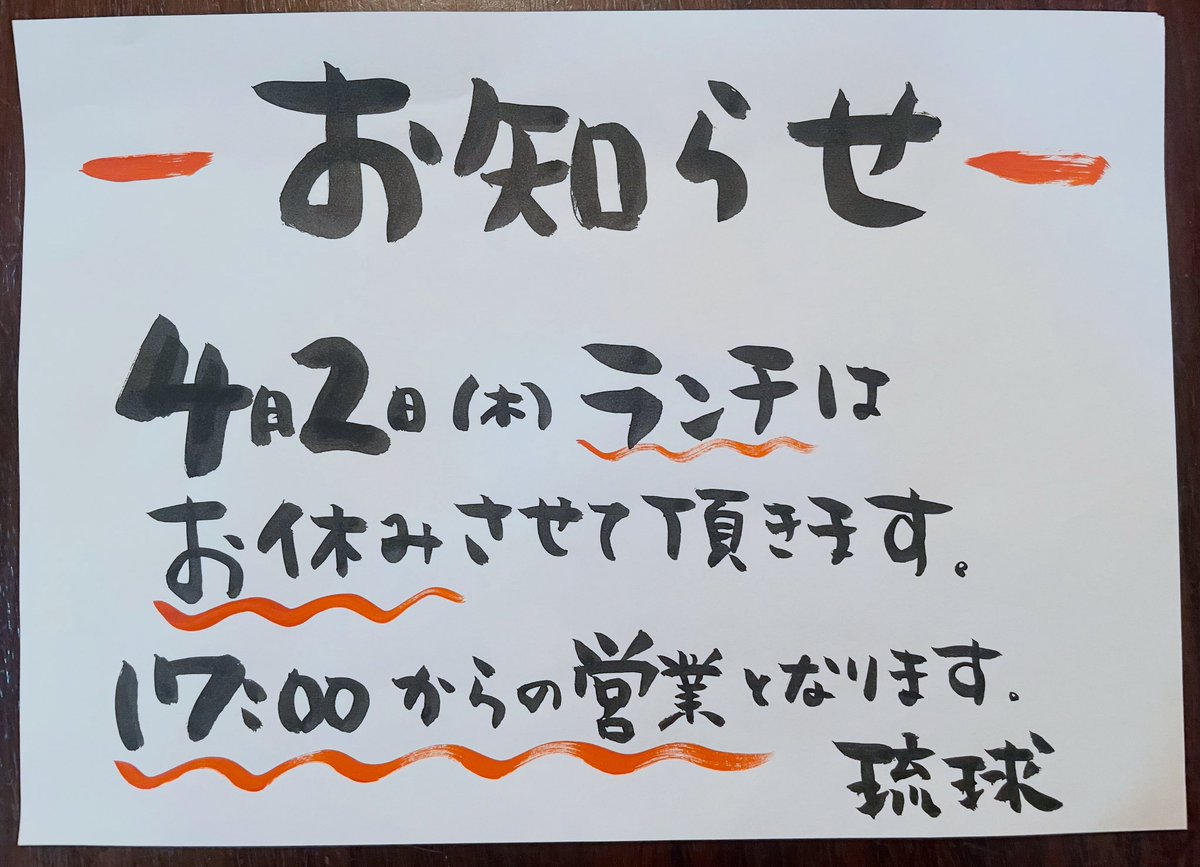 お知らせ
4月2日(木)ランチは
お休みさせて頂きます。
17:00からの営業となります。
琉球